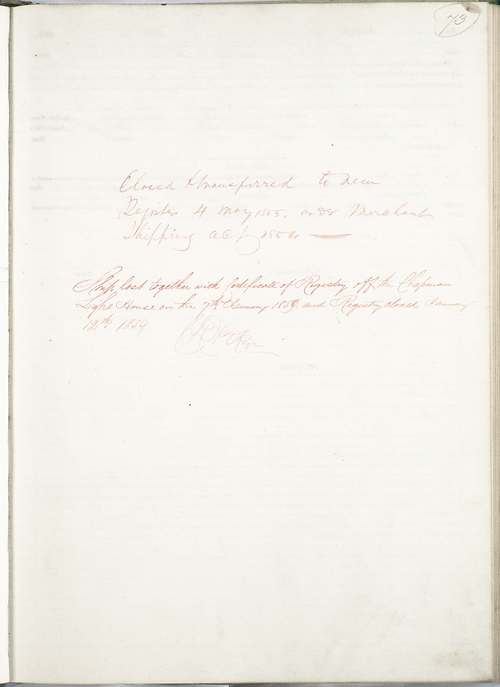 73
Closed & transferred to new
Register 4 May 1855, under Merchant
Shipping Act 1854
Ship lost together with Certificate of Registry off the Chapman
Light House on the 7th January 1859 and Registry closed January
18th 1859